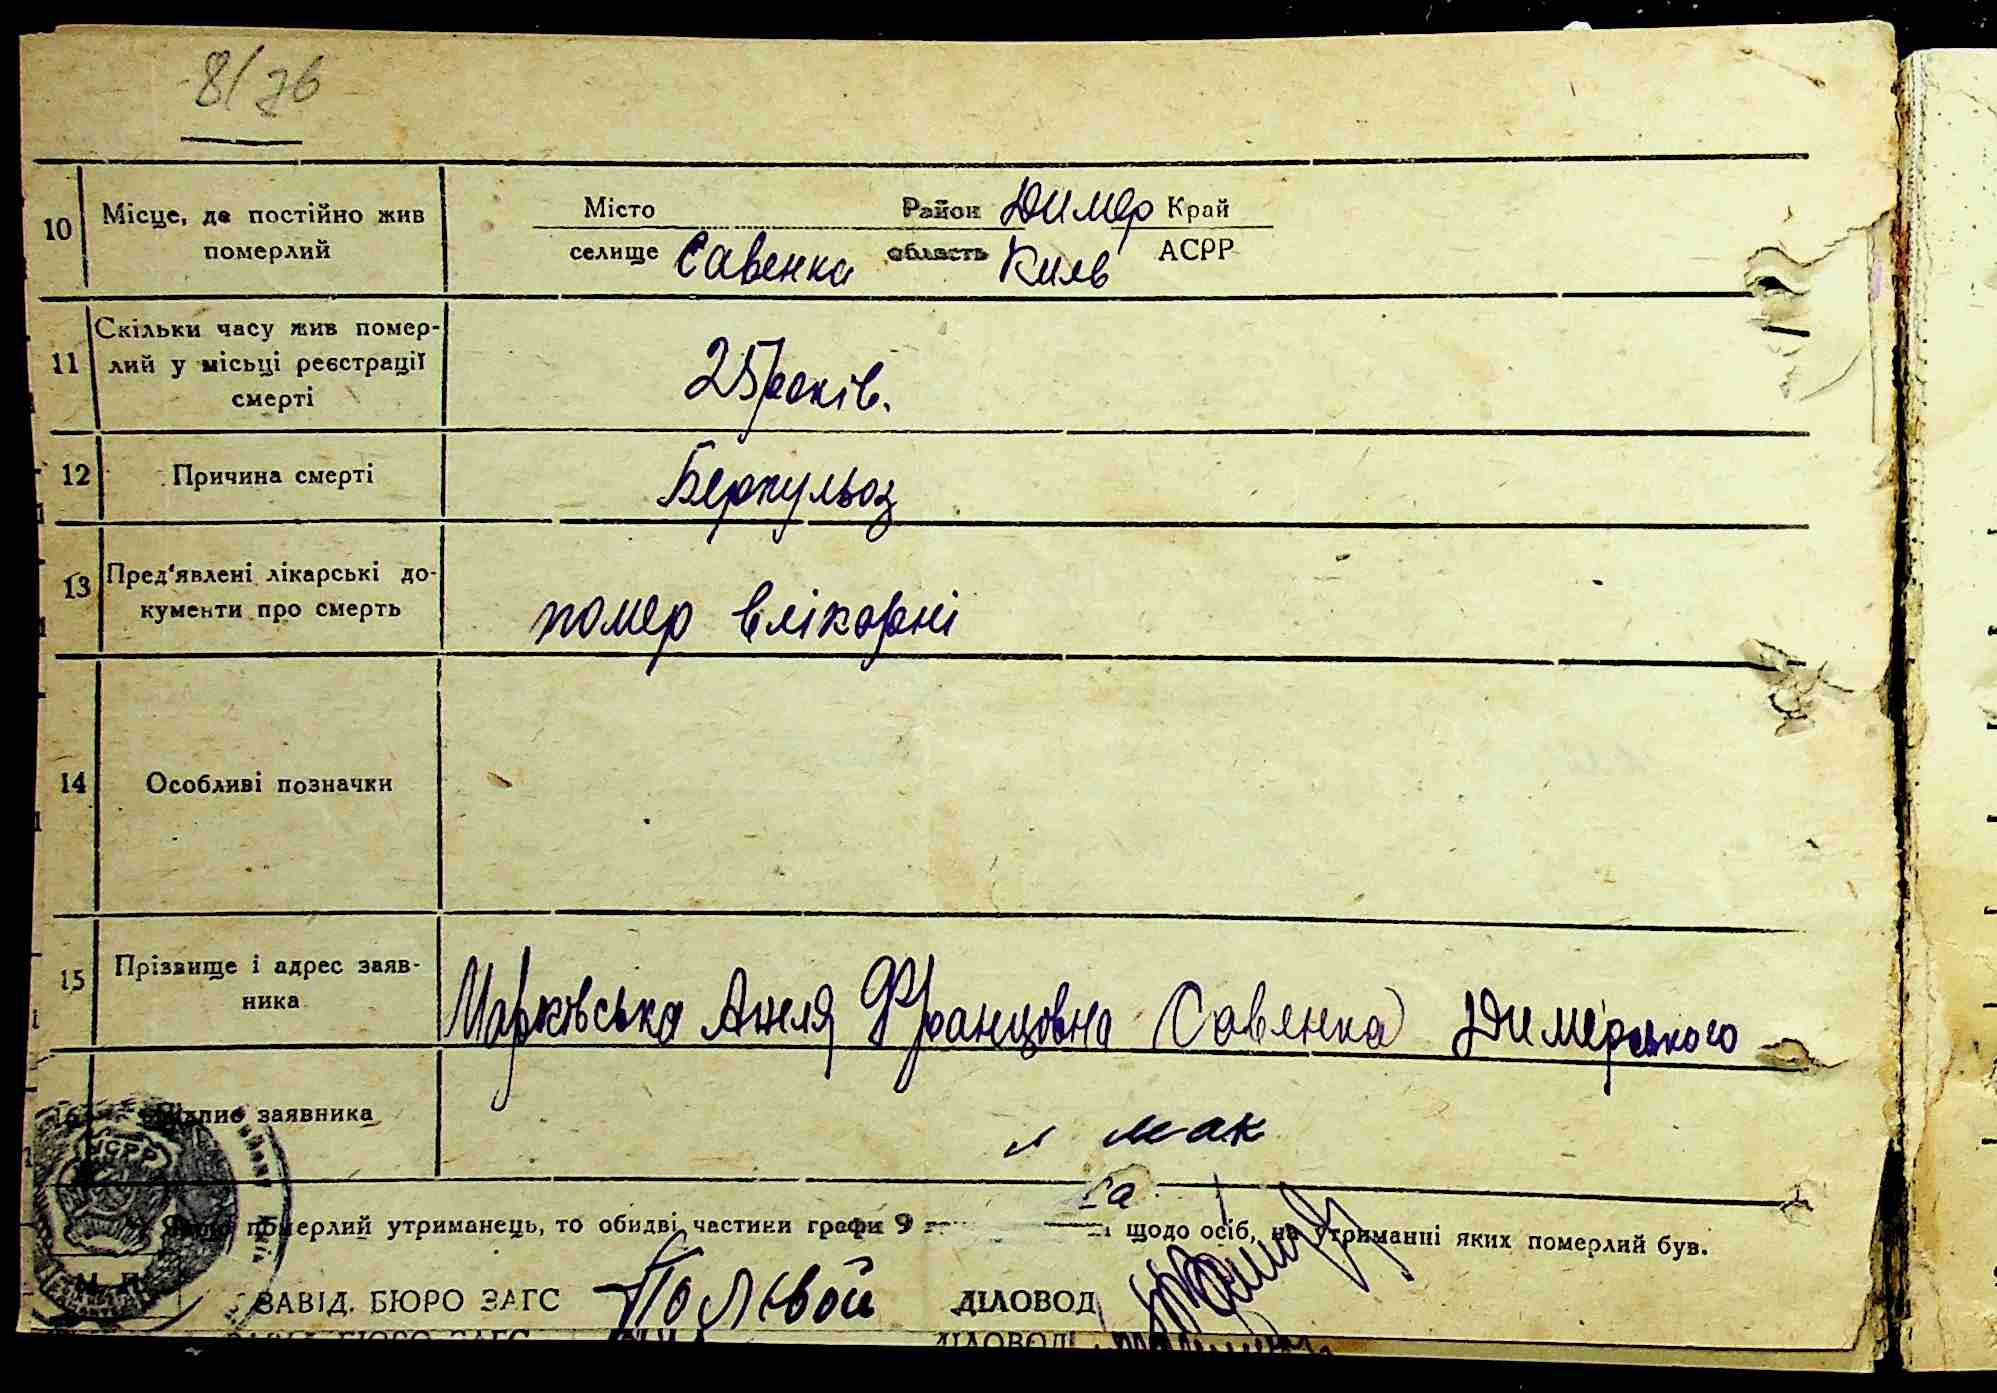 8/76
10 Місце, де постійно жив Місто Район Димер Край
померлий селище Савенка область Київ АСРР
Скільки часу жив помер-
11 лий у місьці реєстрації 25 років.
смерті
12 Причина смерті Беркульоз
13 Пред'явлені лікарські до-
кументи про смерть помер влікарні
14 Особливі позначки
15 Прізвище і адрес заяв-
ника Марківська Анеля Францовна Савенка Димерського
заявника мак
УСРР
померлий утриманець, то обидві частини графи 9 щодо осіб, на утриманні яких померлий був.
М. П.
ЗАВІД. БЮРО ЗАГС Полевой ДІЛОВОД
ЗАВІД. БЮРО ЗАГС ДІЛОВОД